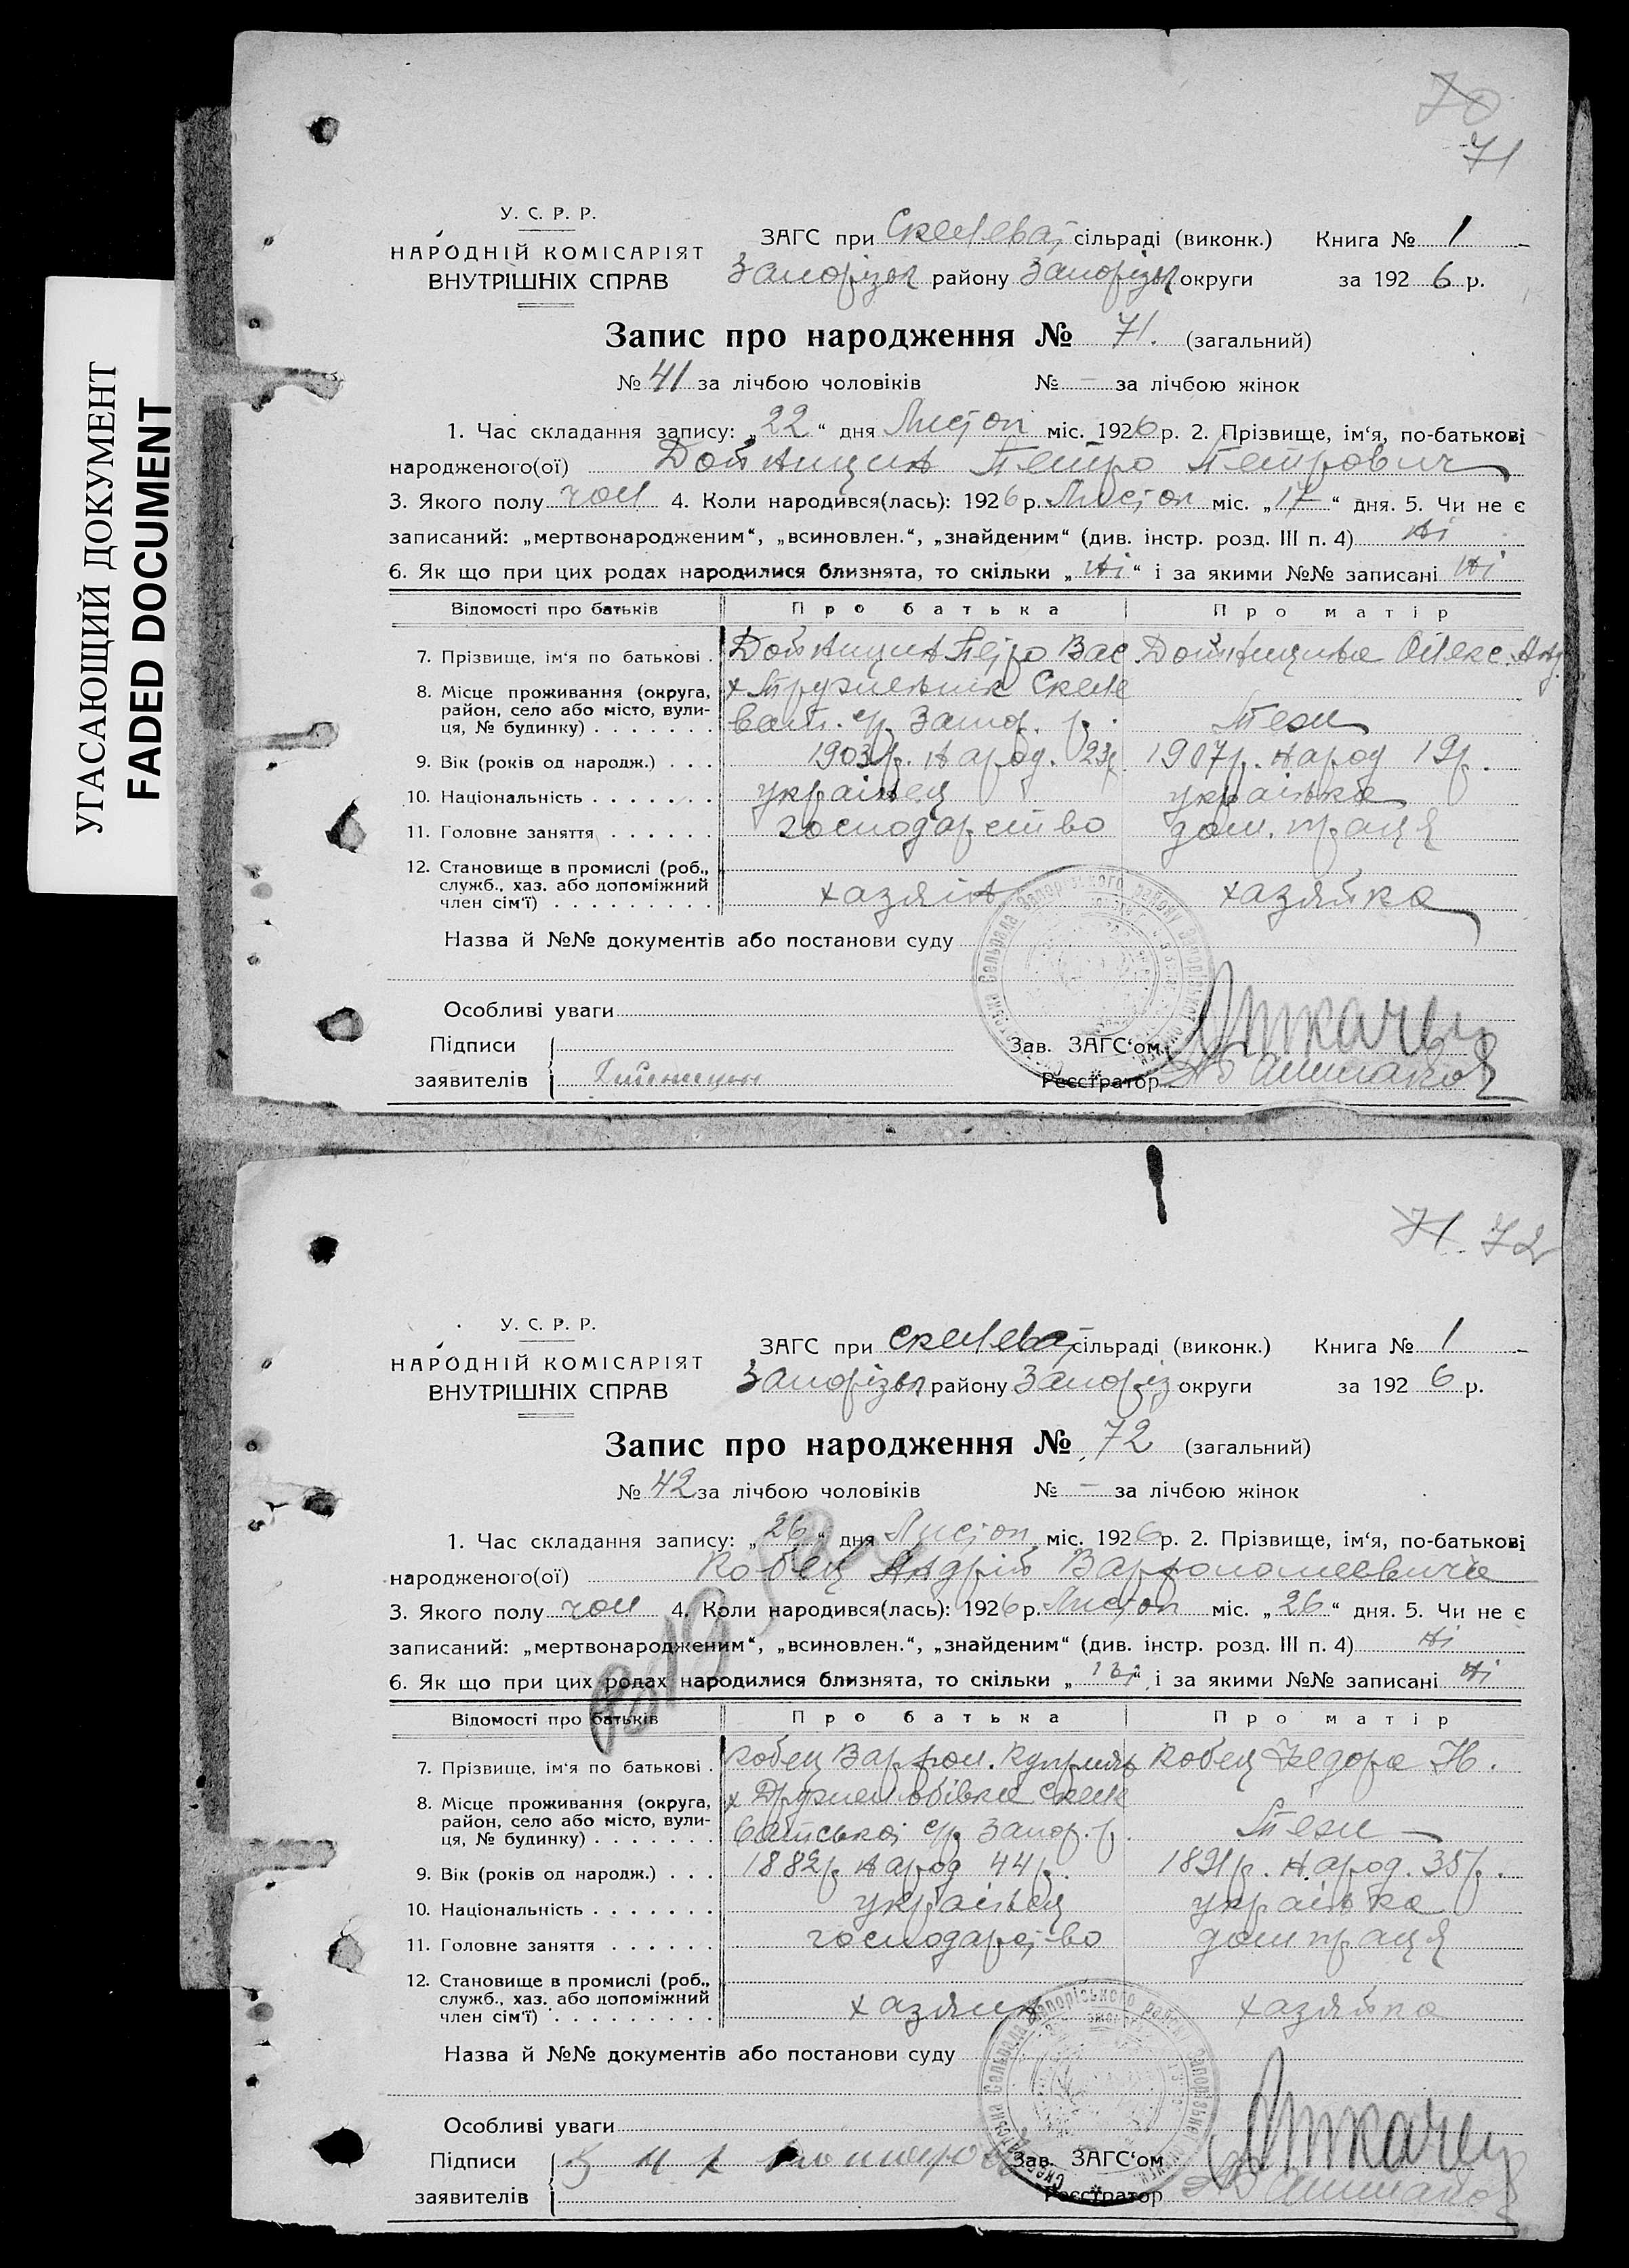 УГАСАЮЩИЙ ДОКУМЕНТ
FADED DOCUMENT
70
71
У. С. Р. Р.
НАРОДНІЙ КОМІСАРІЯТ
ВНУТРІШНІХ СПРАВ
ЗАГС при Скелеват сільраді (виконк.) Книга № 1
Запорізьк району Запорізьк округи за 1926 р.
Запис про народження № 71. (загальний)
№ 41 за лічбою чоловіків № — за лічбою жінок
1. Час складання запису: „22“ дня Листоп міс. 1926 р. 2. Прізвище, ім‘я, по-батькові
народженого(ої) Петро Петрович
3. Якого полу чол 4. Коли народився(лась): 1926 р. Листоп міс. „17“ дня. 5. Чи не є
записаний: „мертвонародженим“, „всиновлен.“, „знайденим“ (див. інстр. розд. III п. 4) Ні
6. Як що при цих родах народилися близнята, то скільки „Ні“ і за якими №№ записані Ні
Відомості про батьків Про батька Про матір
7. Прізвище, ім‘я по батькові . Петро Вас Олекс. Анд.
8. Місце проживання (округа, х Скеле
район, село або місто, вули- ват. с/р. Запор. р. Теж
ця, № будинку) . . . . . . .
9. Вік (років од народж.) . . . 1903 р. Народ. 23 р. 1907 р. Народ 19 р.
10. Національність . . . . . . . українец українка
11. Головне заняття . . . . . . господарство дом. праця
12. Становище в промислі (роб.,
служб., хаз. або допоміжний хазяін хазяйка
член сім‘ї) . . . . . . . . . .
Назва й №№ документів або постанови суду
Особливі уваги
Підписи Зав. ЗАГС‘ом Ткачен
заявителів Реєстратор
71 72
У. С. Р. Р.
НАРОДНІЙ КОМІСАРІЯТ
ВНУТРІШНІХ СПРАВ
ЗАГС при Скелеват сільраді (виконк.) Книга № 1
Запорізьк району Запоріз округи за 1926 р.
Запис про народження № 72 (загальний)
№ 42 за лічбою чоловіків № — за лічбою жінок
1. Час складання запису: „26“ дня Листоп міс. 1926 р. 2. Прізвище, ім‘я, по-батькові
народженого(ої) Кобец Андрій Варфоломеевича
3. Якого полу чол 4. Коли народився(лась): 1926 р. Листоп міс. „26“ дня. 5. Чи не є
записаний: „мертвонародженим“, „всиновлен.“, „знайденим“ (див. інстр. розд. III п. 4) Ні
6. Як що при цих родах народилися близнята, то скільки „ “ і за якими №№ записані Ні
Відомості про батьків Про батька Про матір
7. Прізвище, ім‘я по батькові . Кобец Варфол. Кобец Федора
8. Місце проживання (округа, х Дружелюбівка Скеле
район, село або місто, вули- ватської с/р. Запор. р. Теж
ця, № будинку) . . . . . . .
9. Вік (років од народж.) . . . 1882 р. Народ 44 р. 1891 р. Народ. 35 р.
10. Національність . . . . . . . українец українка
11. Головне заняття . . . . . . господарство дом праця
12. Становище в промислі (роб.,
служб., хаз. або допоміжний хазяин хазяйка
член сім‘ї) . . . . . . . . . .
Назва й №№ документів або постанови суду
Особливі уваги
Підписи Зав. ЗАГС‘ом Ткачен
заявителів Реєстратор